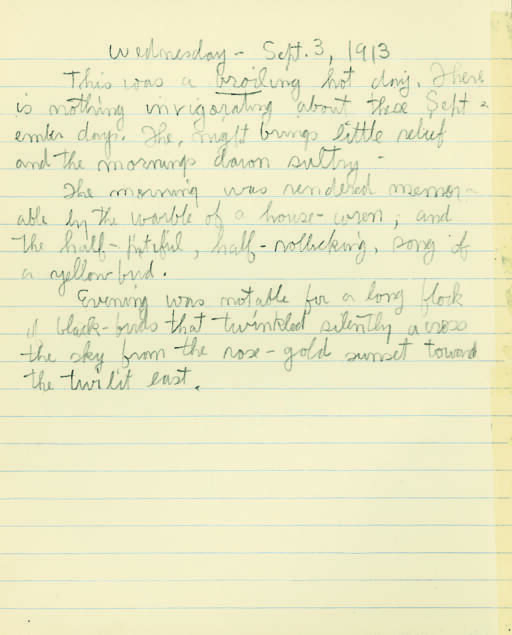 Wednesday - Sept. 3, 1913
This was a broiling hot day. There
is nothing invigorating about these Sept-
ember days. The, night brings little relief
and the mornings dawn sultry -
The morning was rendered memor-
able by the warble of a house-wren, and
the half-pitiful, half-rollicking, song of
a yellowbird.
Evening was notable for a long flock
of black-birds that twinkled silently across
the sky from the rose-gold sunset toward
the twilit east.